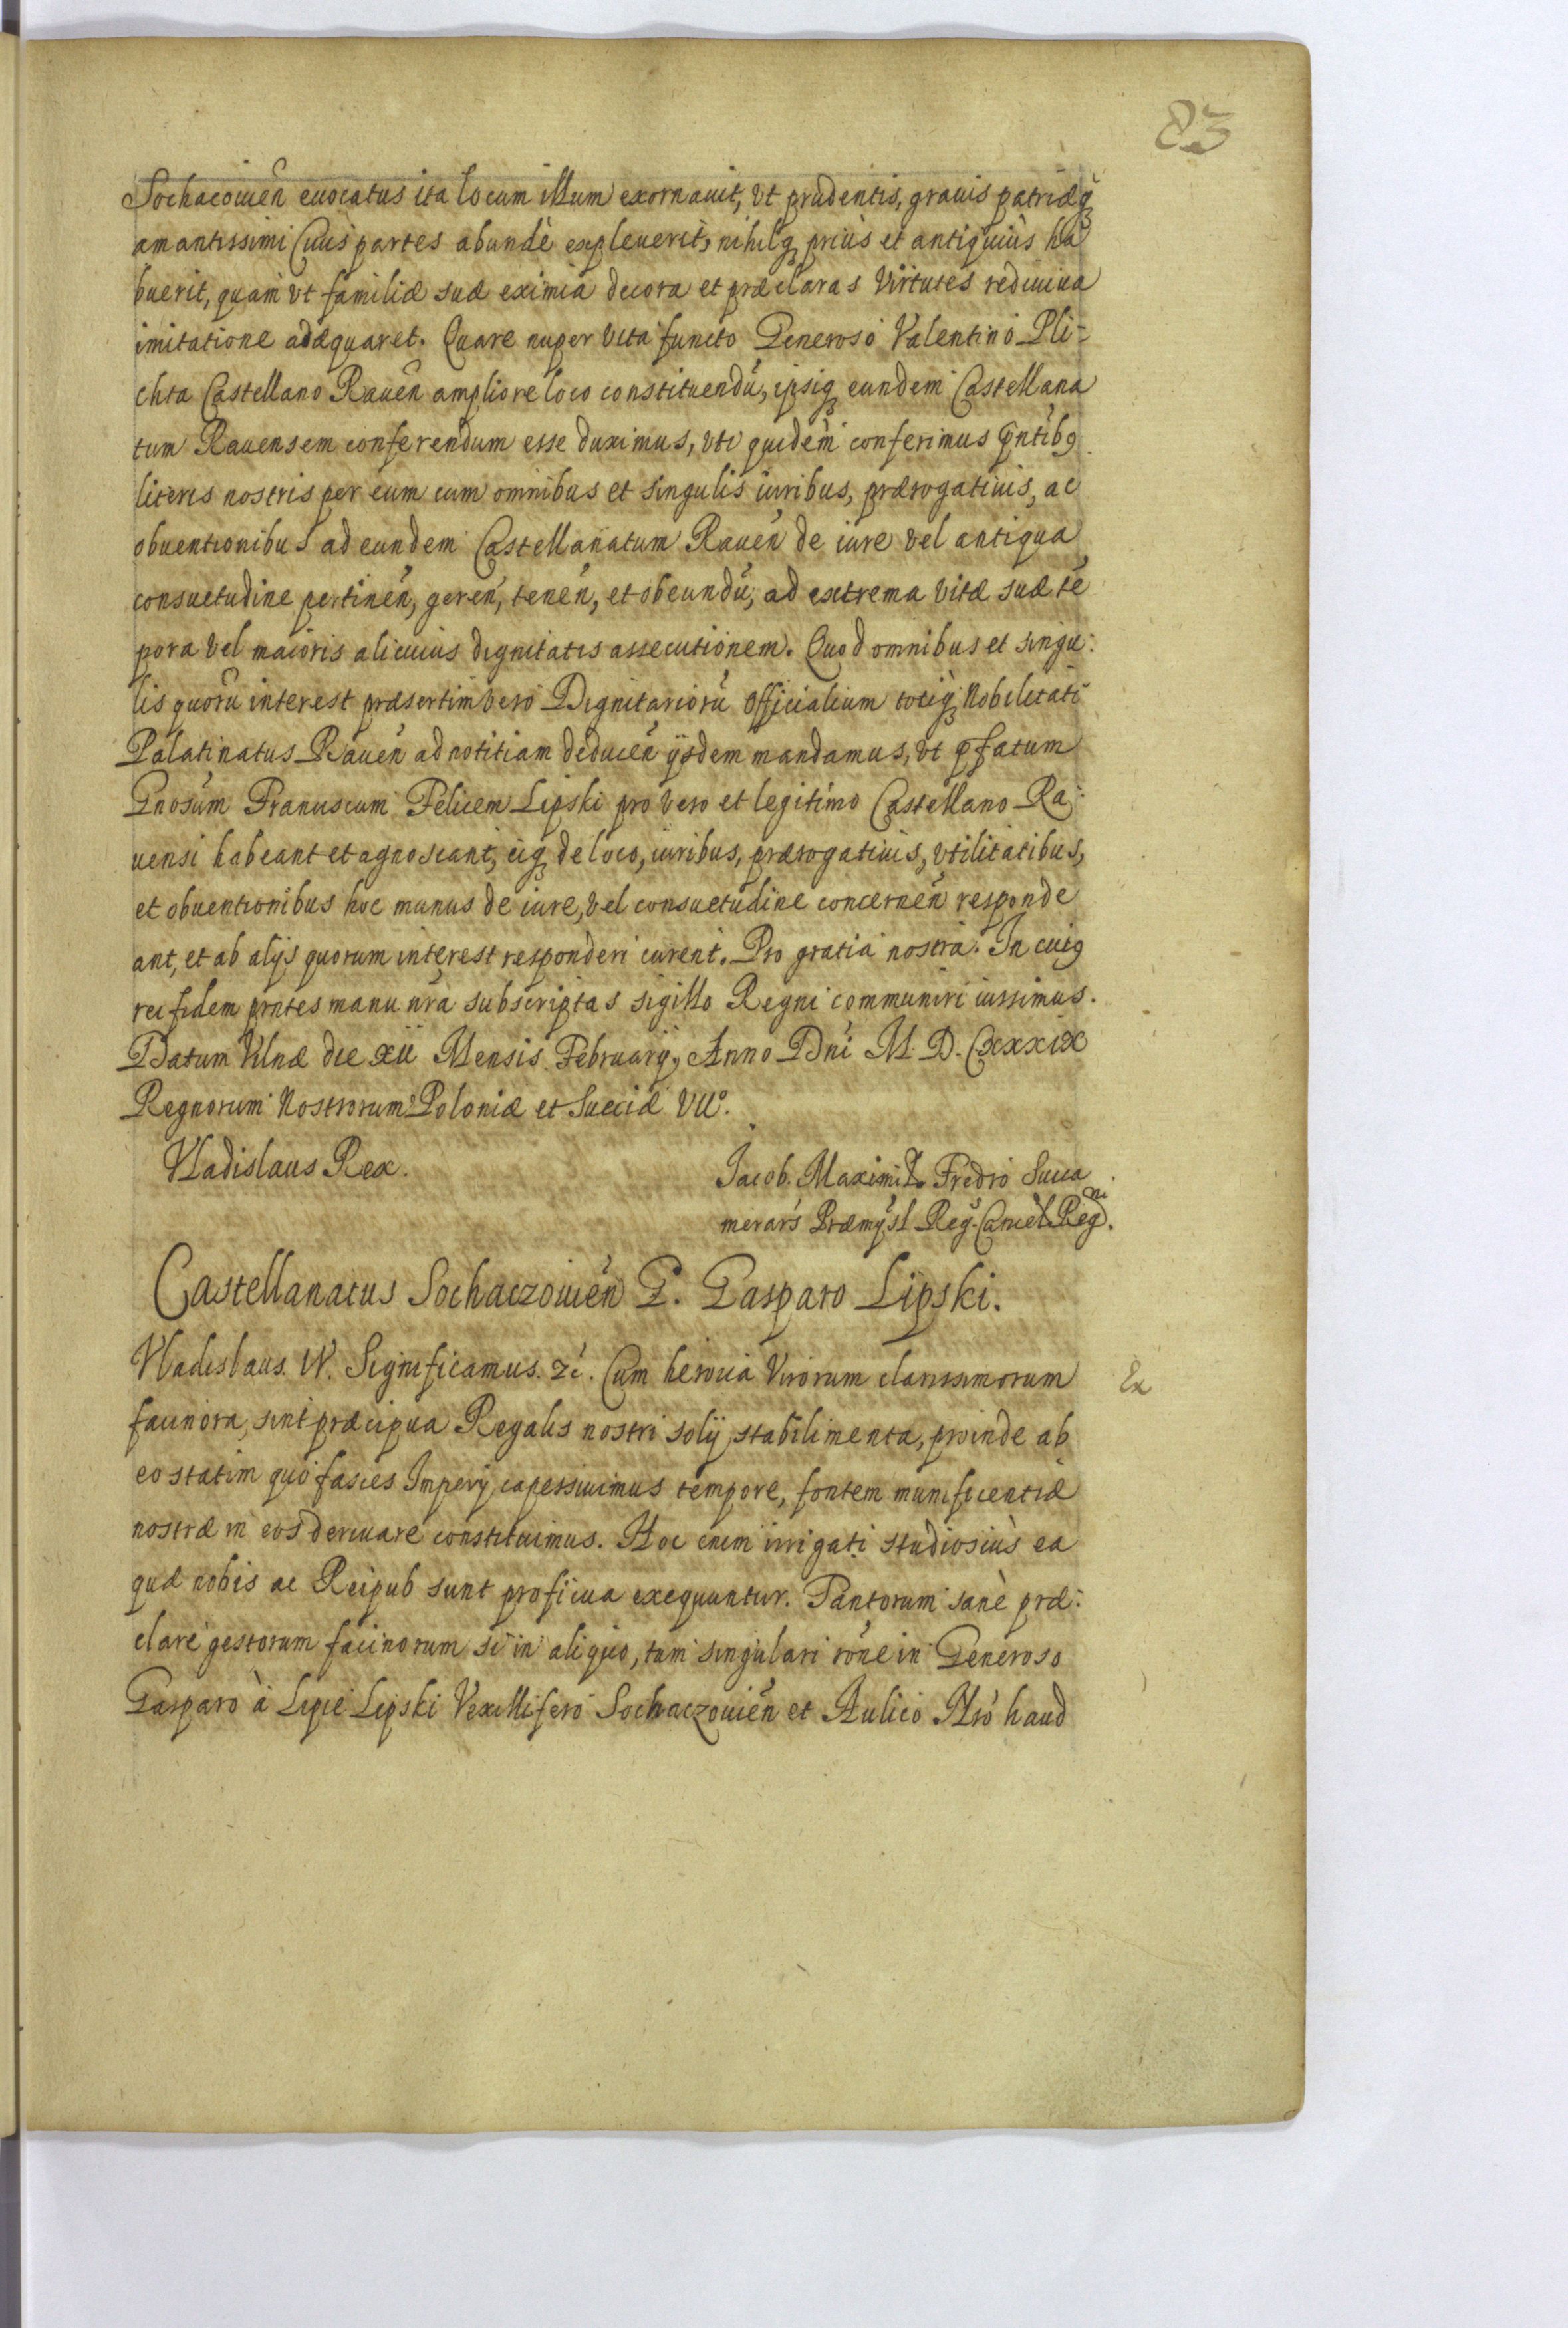 83
Sochacouień euocatus ita locum illum exornauit, vt prudentis, grauis patriæq;
amantissimi Ciuis partes abundè expleuerit, nihilq; priùs et antiquiùs ha
buerit, quàm vt familiæ suæ eximia decora et præclaras virtutes rediuiua
imitatione adæquaret. Quare nuper vita functo Generoso Valentino Pli-
chta Castellano Raueń ampliore loco constituendū, ipsiq; eundem Castellana
tum Rauensem conferendum esse duximus, vti quidem conferimus pñtibꝰ
literis nostris per eum cum omnibus et singulis iuribus, prærogatiuis, ac
obuentionibus ad eundem Castellanatum Raueń de iure vel antiqua
consuetudine pertineń, gereń, teneń, et obeundū, ad extrema vitæ suæ tē
pora vel maioris alicuius dignitatis assecutionem. Quod omnibus et singu:
lis quorū interest præsertim vero Dignitariorū Officialium totiq; Nobilitati
Palatinatus Raueń ad notitiam deduceń ijsdem mandamus, vt pfatum
Gnosum Franciscum Felicem Lipski pro vero et legitimo Castellano Ra:
uensi habeant et agnoscant, eiq; de loco, iuribus, prærogatiuis, vtilitatibus,
et obuentionibus hoc munus de iure, vel consuetudine concerneń responde
ant, et ab alijs quorum interest responderi curent. Pro gratia nostra. In cuiꝰ
rei fidem pntes manu nrà subscriptas sigillo Regni communiri iussimus.
Datum Vilnæ die xii Mensis February, Anno Dni M. D. Cxxxix
Regnorum Nostrorum Poloniæ et Sueciæ VIIº.
Vladislaus Rex.
Jacob. Maximil. Fredro Succa
merars Præmysl Reg. Cancel. Regni.
Castellanatus Sochaczouień G. Gasparo Lipski.
Vladislaus. IV. Significamus. zć. Cum heroica Virorum clarissimorum
Ex
facinora, sint præcipua Regalis nostri solij stabilimenta, proinde ab
eo statim quo fasces Imperij capessiuimus tempore, fontem munificentiæ
nostræ in eos deriuare constituimus. Hoc enim irrigati studiosiùs ea
quæ nobis ac Reipub sunt proficua exequuntur. Tantorum sanè præ:
clarè gestorum facinorum si in aliquo, tum singulari rone in Generoso
Gasparo à Lipie Lipski Vexillifero Sochaczouień et Aulico Nrò haud